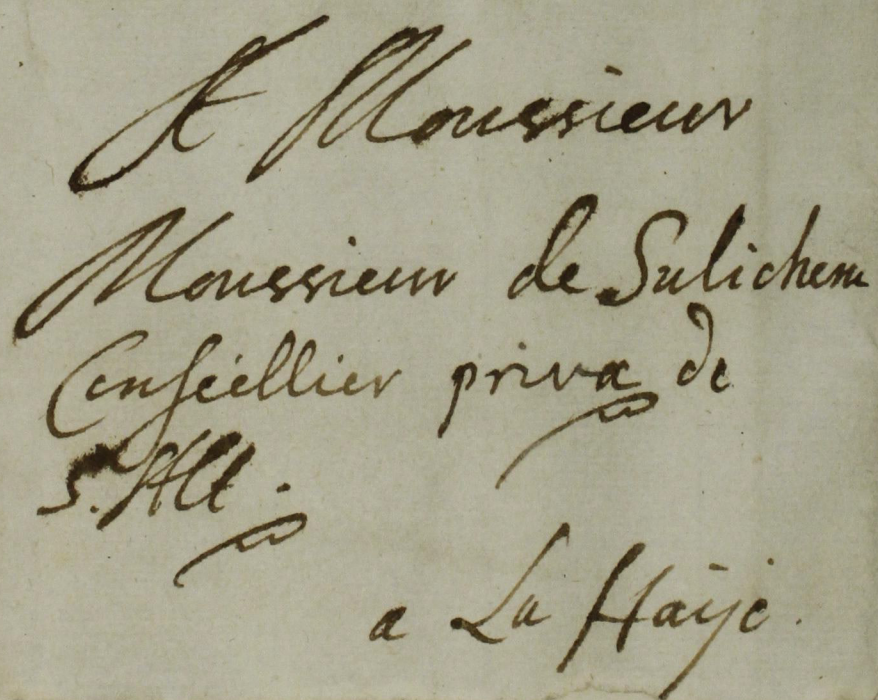 A Monssieur
Monssieur de Sulichem
Conseillier privæ de
S. Alt.
a La Haÿe.